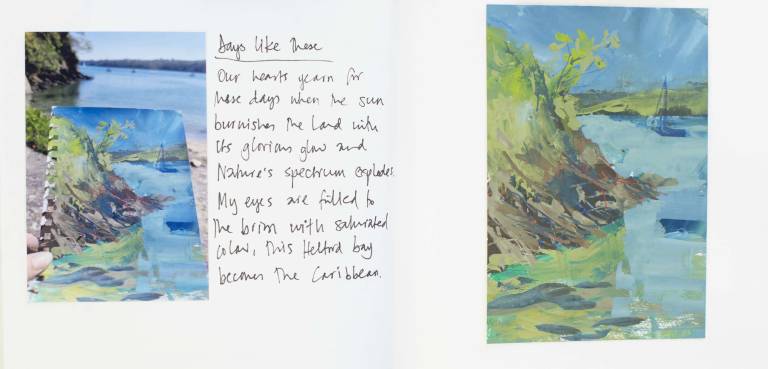 Days like These
Our hearts yearn for
those days when the sun
burnishes the land with
its glorious glow and
Nature's spectrum explodes.
My eyes are filled to
the brim with saturated
colour, this Helford bay
becomes the Caribbean.